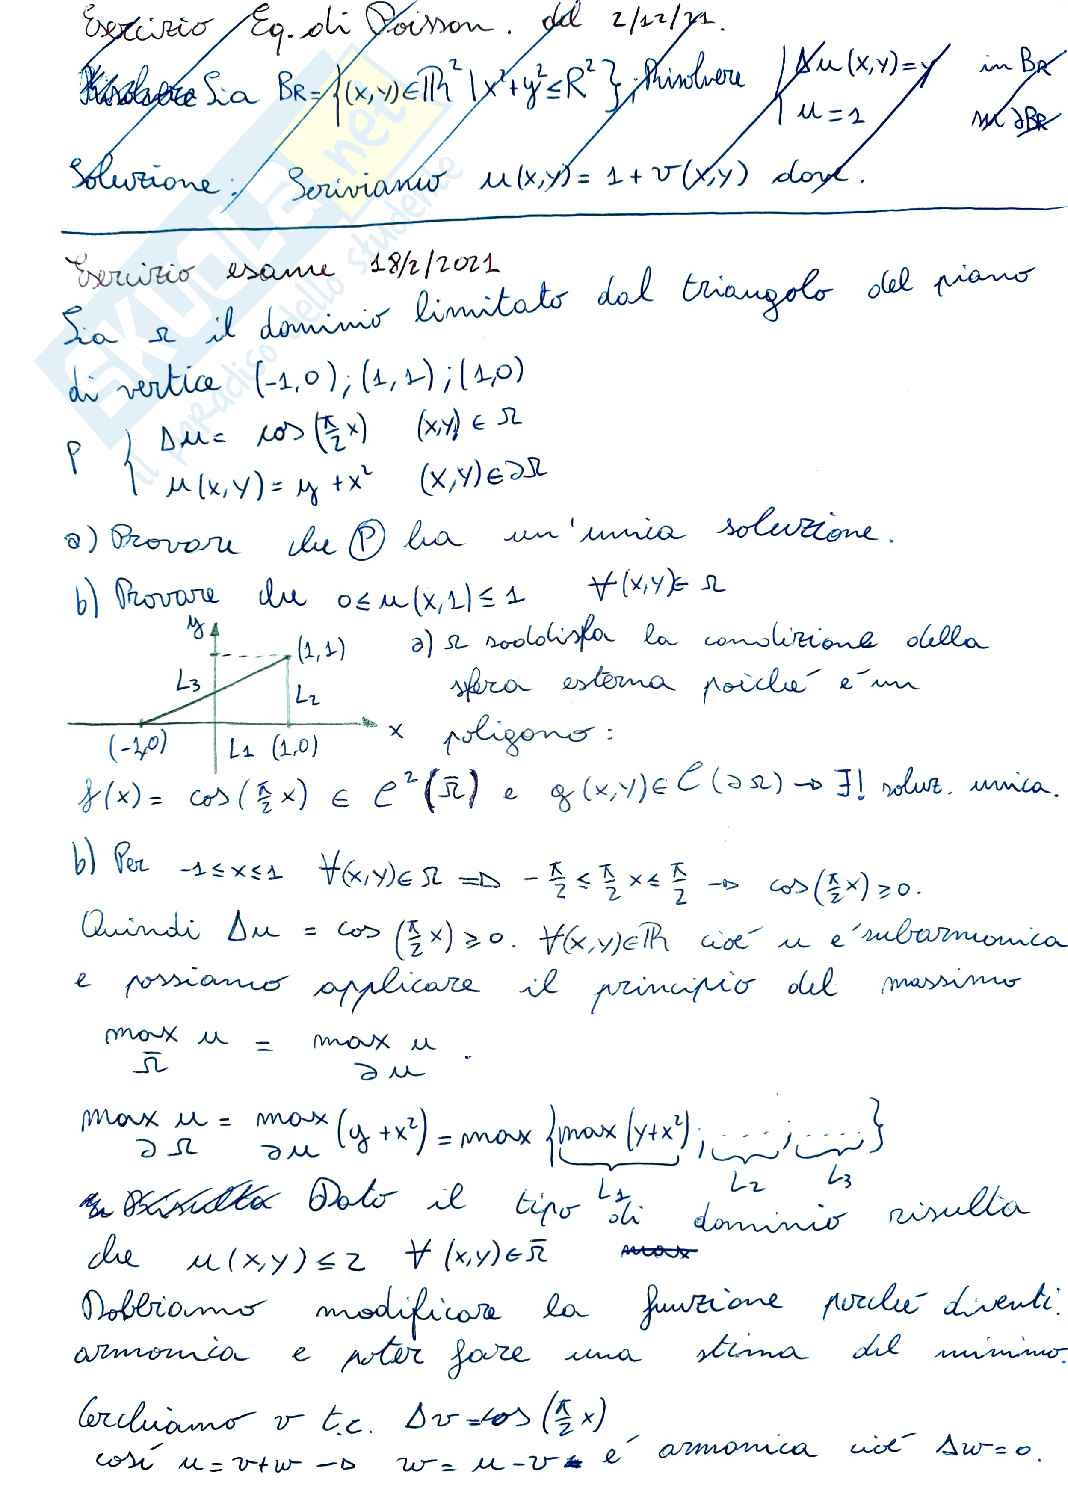 Esercizio Eq. di Poisson. del 2/12/21.
Risolvere Sia BR = {(x,y) ∈ ℝ² | x²+y² ≤ R²}; Risolvere { Δu(x,y) = y in BR
u = 1 su ∂BR
Soluzione: Scriviamo u(x,y) = 1 + v(x,y) dove.
Esercizio esame 18/2/2021
Sia Ω il dominio limitato dal triangolo del piano
di vertice (-1,0); (1,1); (1,0)
P { Δu = cos(π/2 x) (x,y) ∈ Ω
u(x,y) = y + x² (x,y) ∈ ∂Ω
a) Provare che (P) ha un'unica soluzione.
b) Provare che 0 ≤ u(x,1) ≤ 1 ∀(x,y) ∈ Ω
y
(1,1)
L3
L2
x
(-1,0) L1 (1,0)
a) Ω soddisfa la condizione della
sfera esterna poiché é un
poligono:
f(x) = cos(π/2 x) ∈ C²(Ω̄) e g(x,y) ∈ C(∂Ω) → ∃! soluz. unica.
b) Per -1 ≤ x ≤ 1 ∀(x,y) ∈ Ω ⇒ -π/2 ≤ π/2 x ≤ π/2 → cos(π/2 x) ≥ 0.
Quindi Δu = cos(π/2 x) ≥ 0. ∀(x,y) ∈ ℝ cioé u é subarmonica
e possiamo applicare il principio del massimo
max u = max u .
Ω̄ ∂u
max u = max (y + x²) = max { max (y+x²); ......, ...... }
∂Ω ∂u L1 L2 L3
Risulta Dato il tipo di dominio risulta
che u(x,y) ≤ 2 ∀ (x,y) ∈ Ω̄ max
Dobbiamo modificare la funzione perché diventi
armonica e poter fare una stima del minimo.
Cerchiamo v t.c. Δv = cos(π/2 x)
cosí u = v+w → w = u - v é armonica cioé Δw = 0.